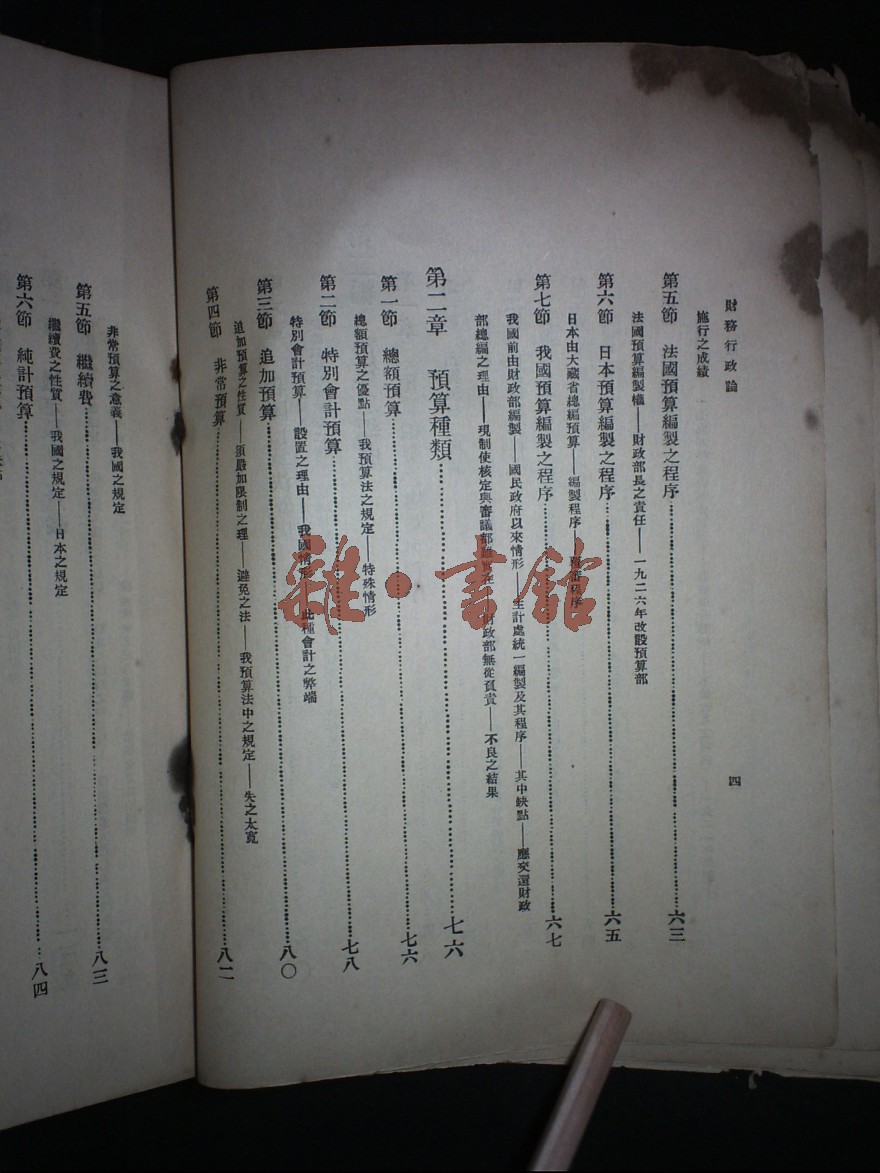 財務行政論
四
施行之成績
第五節　法國預算編製之程序……六三
法國預算編製權——財政部長之責任——一九二六年改設預算部
第六節　日本預算編製之程序……六五
日本由大藏省總編預算——編製程序——
第七節　我國預算編製之程序……六七
我國前由財政部編製——國民政府以來情形——主計處統一編製及其程序——其中缺點——應交還財政
部總編之理由——現制使核定與審議部 財政部無從負責——不良之結果
第二章　預算種類……七六
第一節　總額預算……七六
總額預算之優點——我預算法之規定——特殊情形
第二節　特別會計預算……七八
特別會計預算——設置之理由——我國情形 此種會計之弊端
第三節　追加預算……八〇
追加預算之性質——須嚴加限制之理——避免之法——我預算法中之規定——失之太寬
第四節　非常預算……八二
非常預算之意義——我國之規定
第五節　繼續費……八三
繼續費之性質——我國之規定——日本之規定
第六節　純計預算……八四
雜·書館